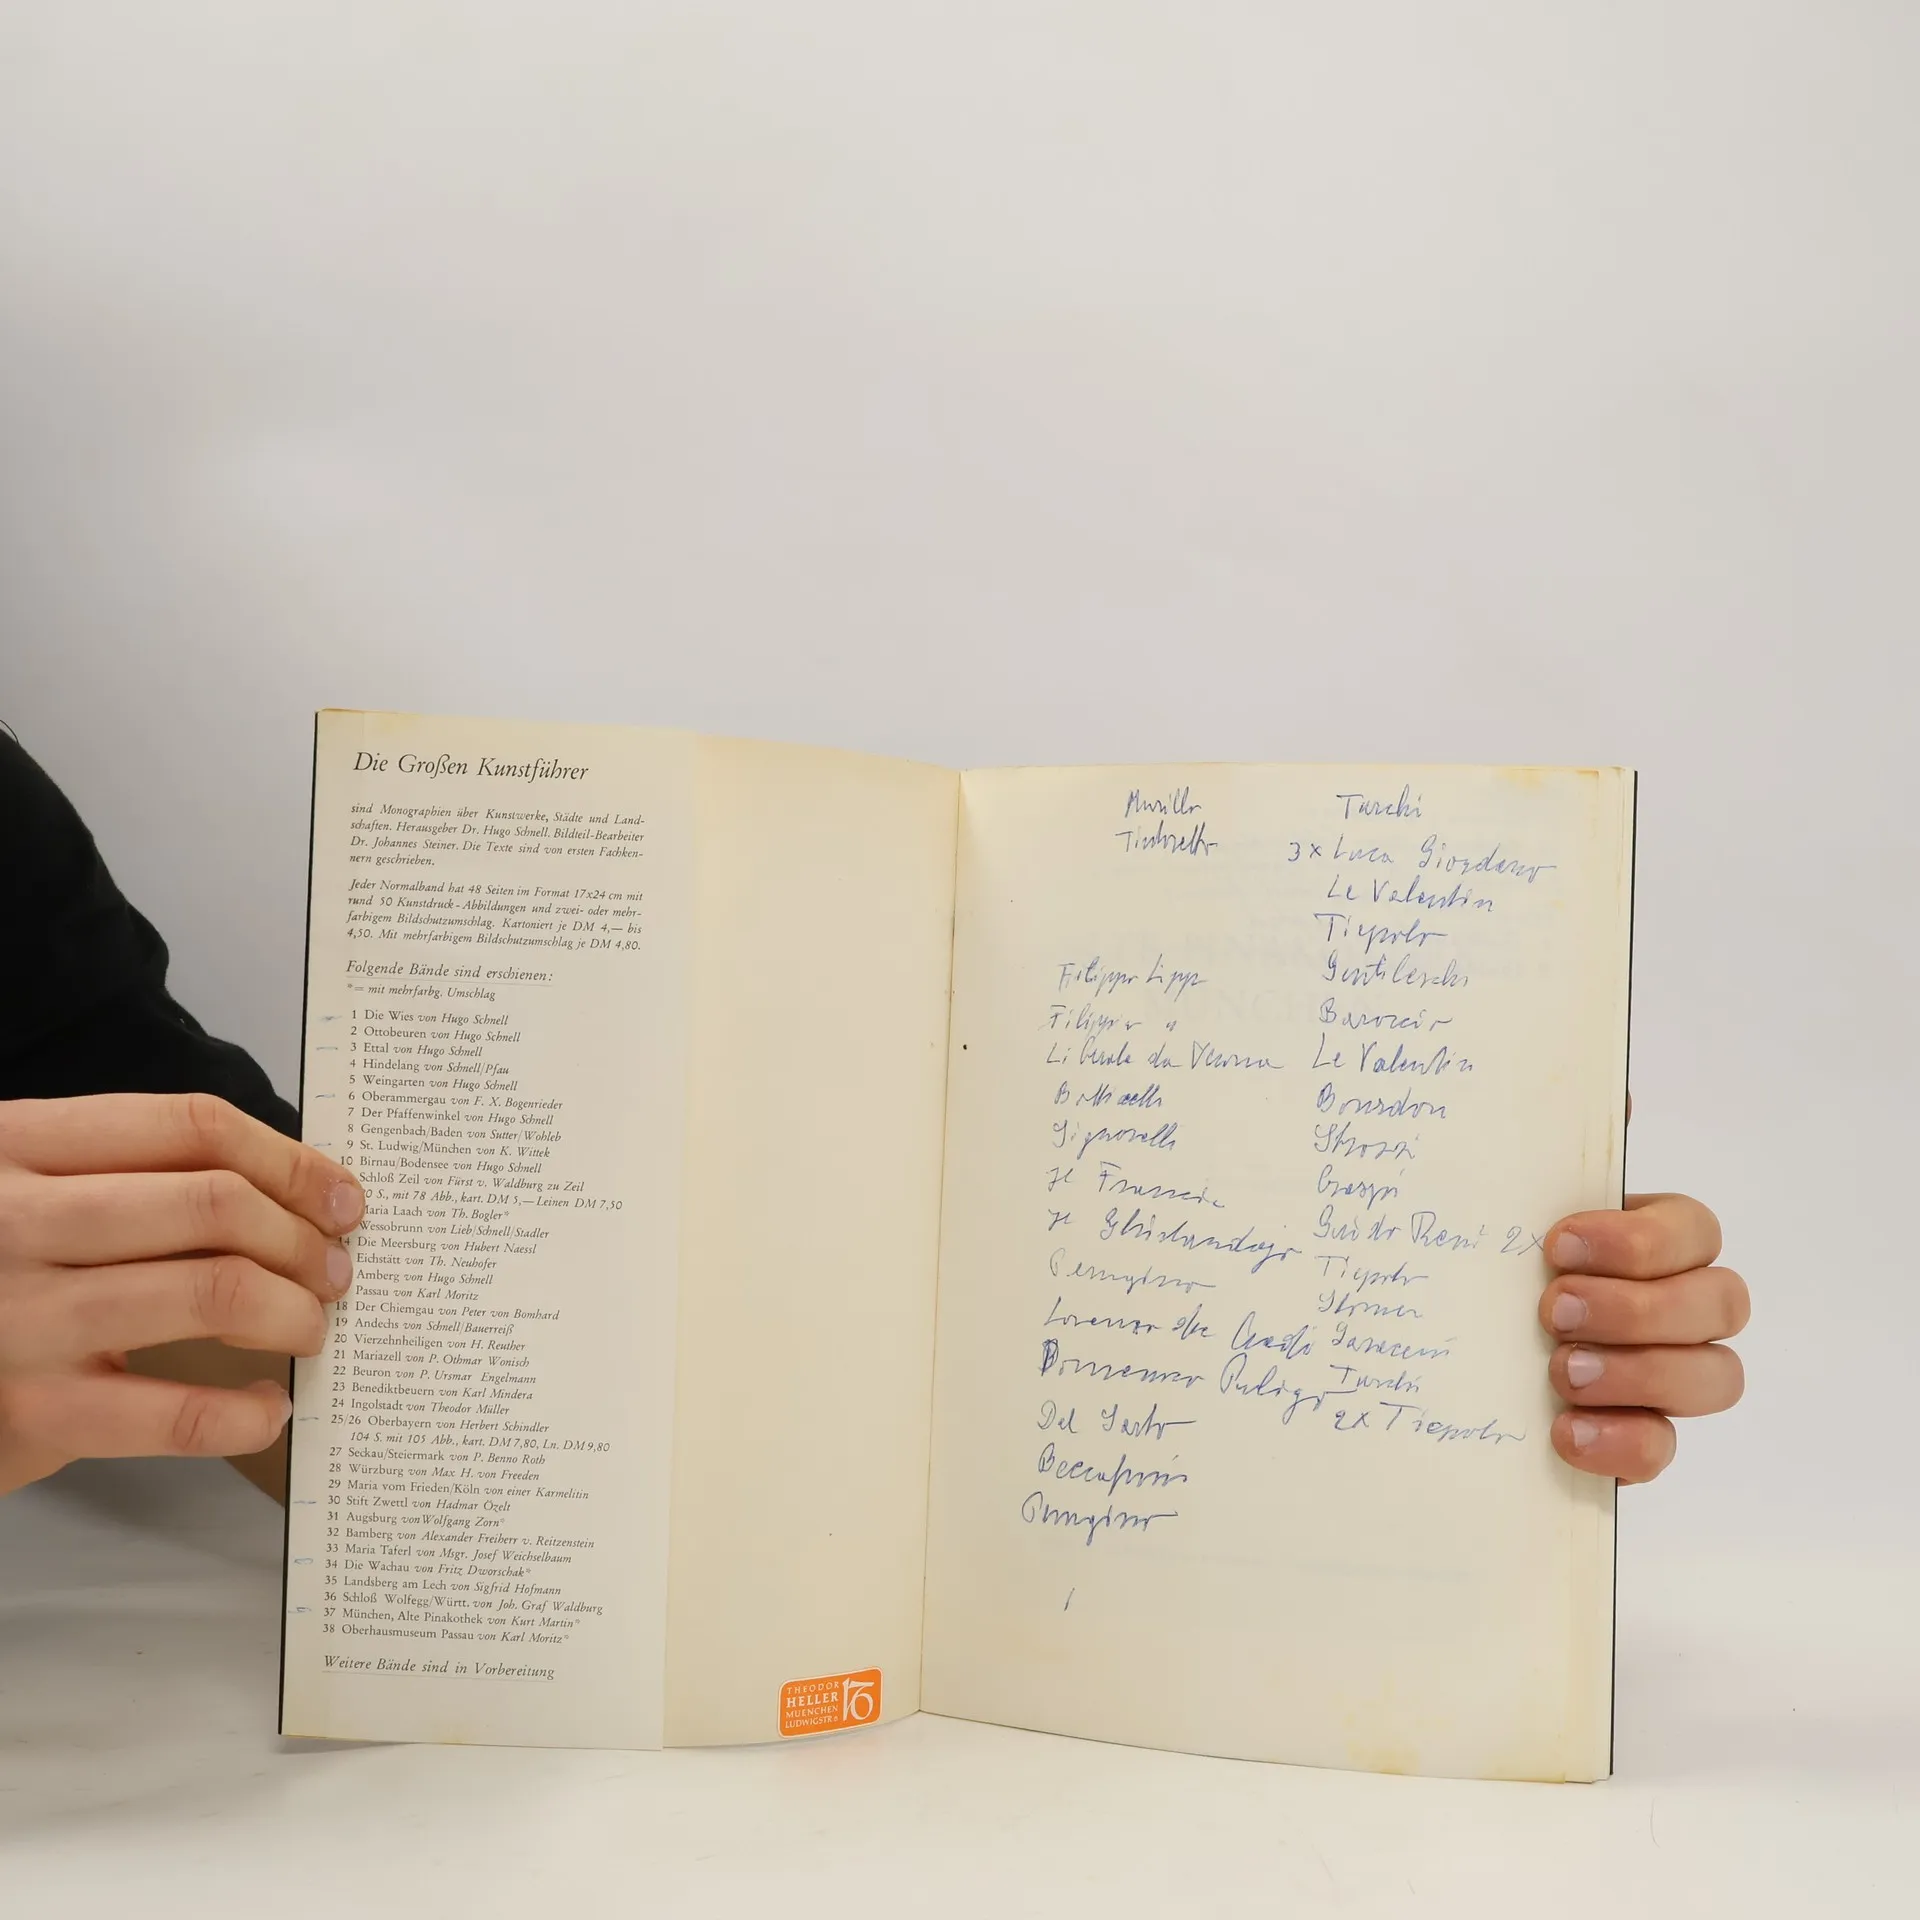 Die Großen Kunstführer
sind Monographien über Kunstwerke, Städte und Land-
schaften. Herausgeber Dr. Hugo Schnell. Bildteil-Bearbeiter
Dr. Johannes Steiner. Die Texte sind von ersten Fachken-
nern geschrieben.
Jeder Normalband hat 48 Seiten im Format 17x24 cm mit
rund 50 Kunstdruck-Abbildungen und zwei- oder mehr-
farbigem Bildschutzumschlag. Kartoniert je DM 4,— bis
4,50. Mit mehrfarbigem Bildschutzumschlag je DM 4,80.
Folgende Bände sind erschienen:
*= mit mehrfarbg. Umschlag
1 Die Wies von Hugo Schnell
2 Ottobeuren von Hugo Schnell
3 Ettal von Hugo Schnell
4 Hindelang von Schnell/Pfau
5 Weingarten von Hugo Schnell
6 Oberammergau von F. X. Bogenrieder
7 Der Pfaffenwinkel von Hugo Schnell
8 Gengenbach/Baden von Sutter/Wohleb
9 St. Ludwig/München von K. Wittek
10 Birnau/Bodensee von Hugo Schnell
Schloß Zeil von Fürst v. Waldburg zu Zeil
0 S., mit 78 Abb., kart. DM 5,— Leinen DM 7,50
Maria Laach von Th. Bogler*
Wessobrunn von Lieb/Schnell/Stadler
14 Die Meersburg von Hubert Naessl
Eichstätt von Th. Neuhofer
Amberg von Hugo Schnell
Passau von Karl Moritz
18 Der Chiemgau von Peter von Bomhard
19 Andechs von Schnell/Bauerreiß
20 Vierzehnheiligen von H. Reuther
21 Mariazell von P. Othmar Wonisch
22 Beuron von P. Ursmar Engelmann
23 Benediktbeuern von Karl Mindera
24 Ingolstadt von Theodor Müller
25/26 Oberbayern von Herbert Schindler
104 S. mit 105 Abb., kart. DM 7,80, Ln. DM 9,80
27 Seckau/Steiermark von P. Benno Roth
28 Würzburg von Max H. von Freeden
29 Maria vom Frieden/Köln von einer Karmelitin
30 Stift Zwettl von Hadmar Özelt
31 Augsburg von Wolfgang Zorn*
32 Bamberg von Alexander Freiherr v. Reitzenstein
33 Maria Taferl von Msgr. Josef Weichselbaum
34 Die Wachau von Fritz Dworschak*
35 Landsberg am Lech von Sigfrid Hofmann
36 Schloß Wolfegg/Württ. von Joh. Graf Waldburg
37 München, Alte Pinakothek von Kurt Martin*
38 Oberhausmuseum Passau von Karl Moritz*
Weitere Bände sind in Vorbereitung
THEODOR
HELLER
MUENCHEN
LUDWIGSTR 6
Murillo
Tintoretto
Filippo Lippi
Filippin "
Liberale da Verona
Botticelli
Signorelli
Francia
Ghirlandajo
Perugino
Lorenzo di Credi
Domenico Puligo
Del Sarto
Beccafumi
Perugino
Turchi
3x Luca Giordano
Le Valentin
Tiepolo
Gentileschi
Baroccio
Le Valentin
Bourdon
Strozzi
Crespi
Guido Reni 2x
Tiepolo
Stomer
Saraceni
Turchi
2x Tiepolo